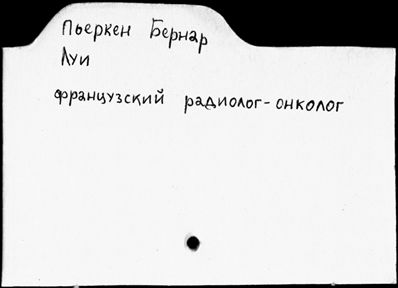 Пьеркен Бернар
Луи
французский радиолог-онколог